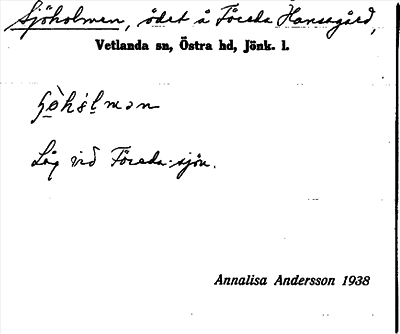 Sjöholmen, ödet å Föreda Hansagård,
Vetlanda sn, Östra hd, Jönk. l.
Låg vid Föreda-sjön.
Annalisa Andersson 1938